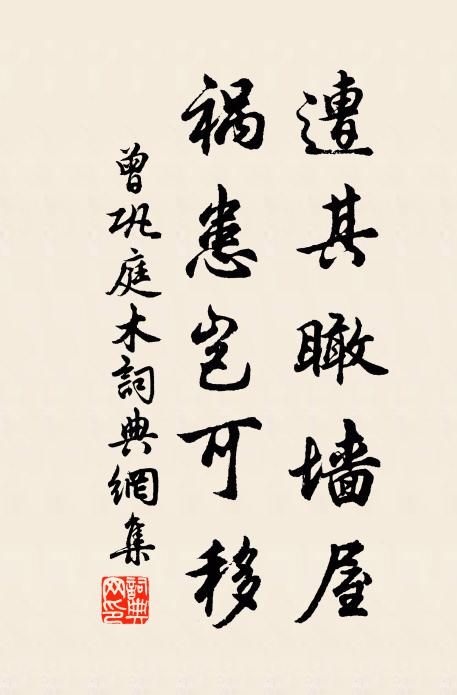 遭其瞰墙屋
祸患岂可移
曾巩庭木詞典網集
詞典
网印